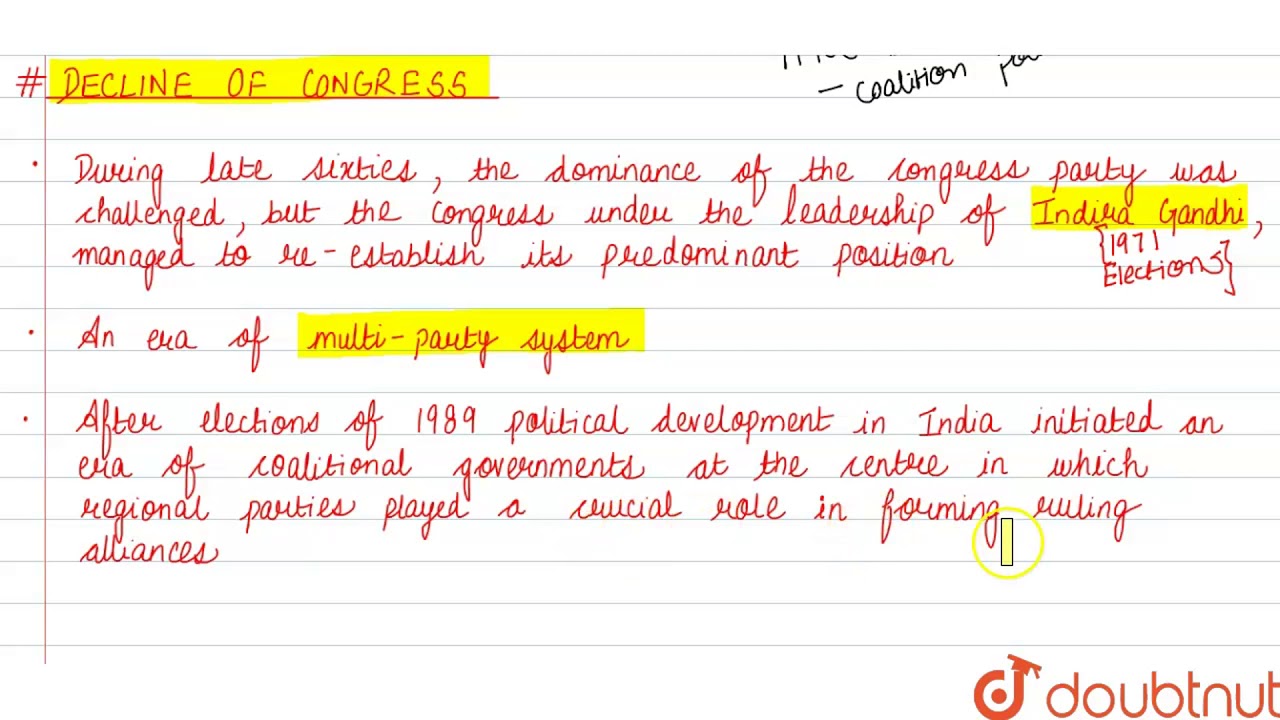 – Coalition
# DECLINE OF CONGRESS
• During late sixties, the dominance of the congress party was
challenged, but the congress under the leadership of Indira Gandhi,
managed to re-establish its predominant position
{1971
Elections}
• An era of multi-party system
• After elections of 1989 political development in India initiated an
era of coalitional governments at the centre in which
regional parties played a crucial role in forming ruling
alliances
doubtnut